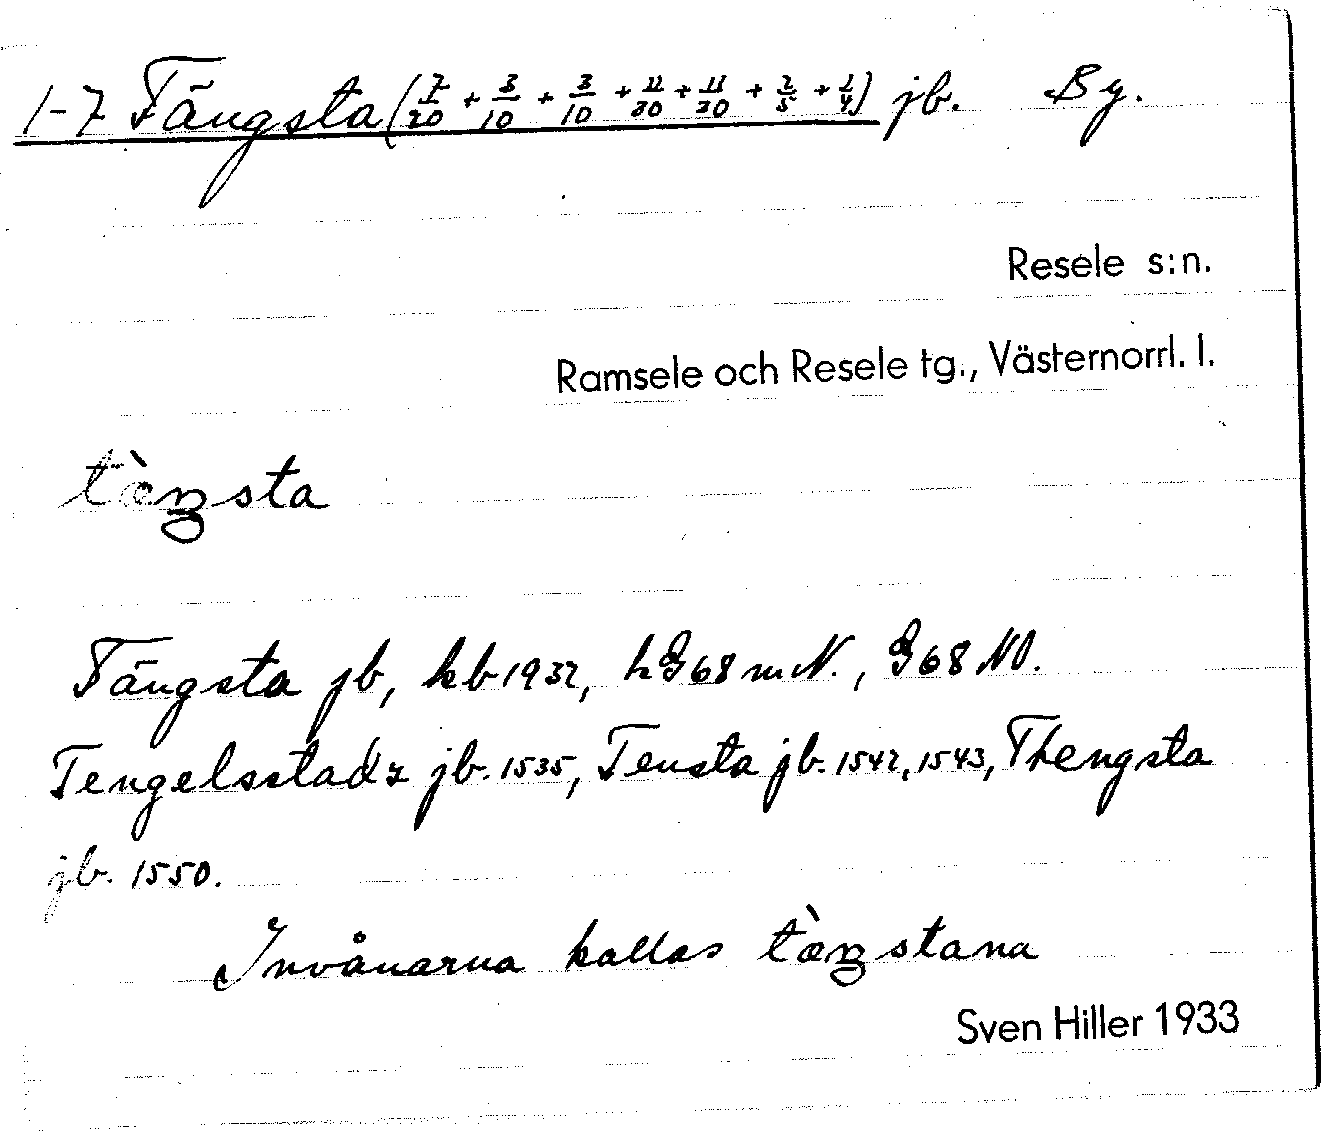 1-7 Tängsta (7/20 + 3/10 + 3/10 + 11/20 + 11/20 + 2/5 + 1/4) jb. By.
Resele s:n.
Ramsele och Resele tg., Västernorrl. l.
tæ̀ŋsta
Tängsta jb, kb 1932, hG68mN., G68NO.
Tengelsstadz jb. 1535, Tensta jb. 1542, 1543, Thengsta
jb. 1550.
Invånarna kallas tæ̀ŋstana
Sven Hiller 1933